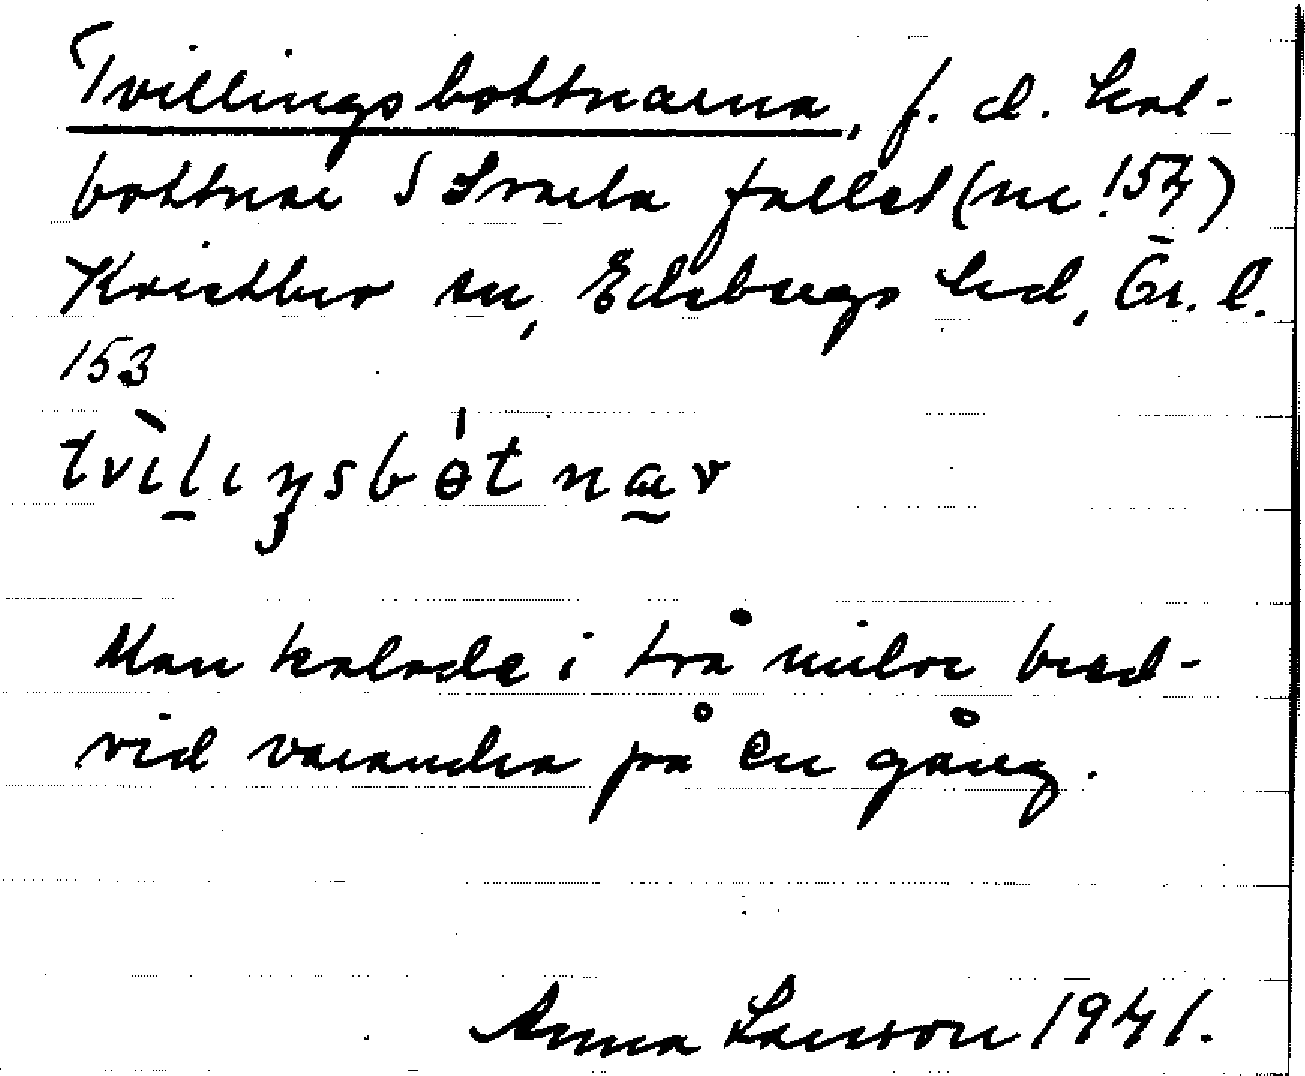 Tvillingsbottnarna, f. d. kol-
bottnar S Svarta fallet (nr 154)
Kvistbro sn, Edsbergs hd, Ör. l.
153
tvìlıŋsbòtnar
Man kolade i två milor bred-
vid varandra på en gång.
Anna Larsson 1941.